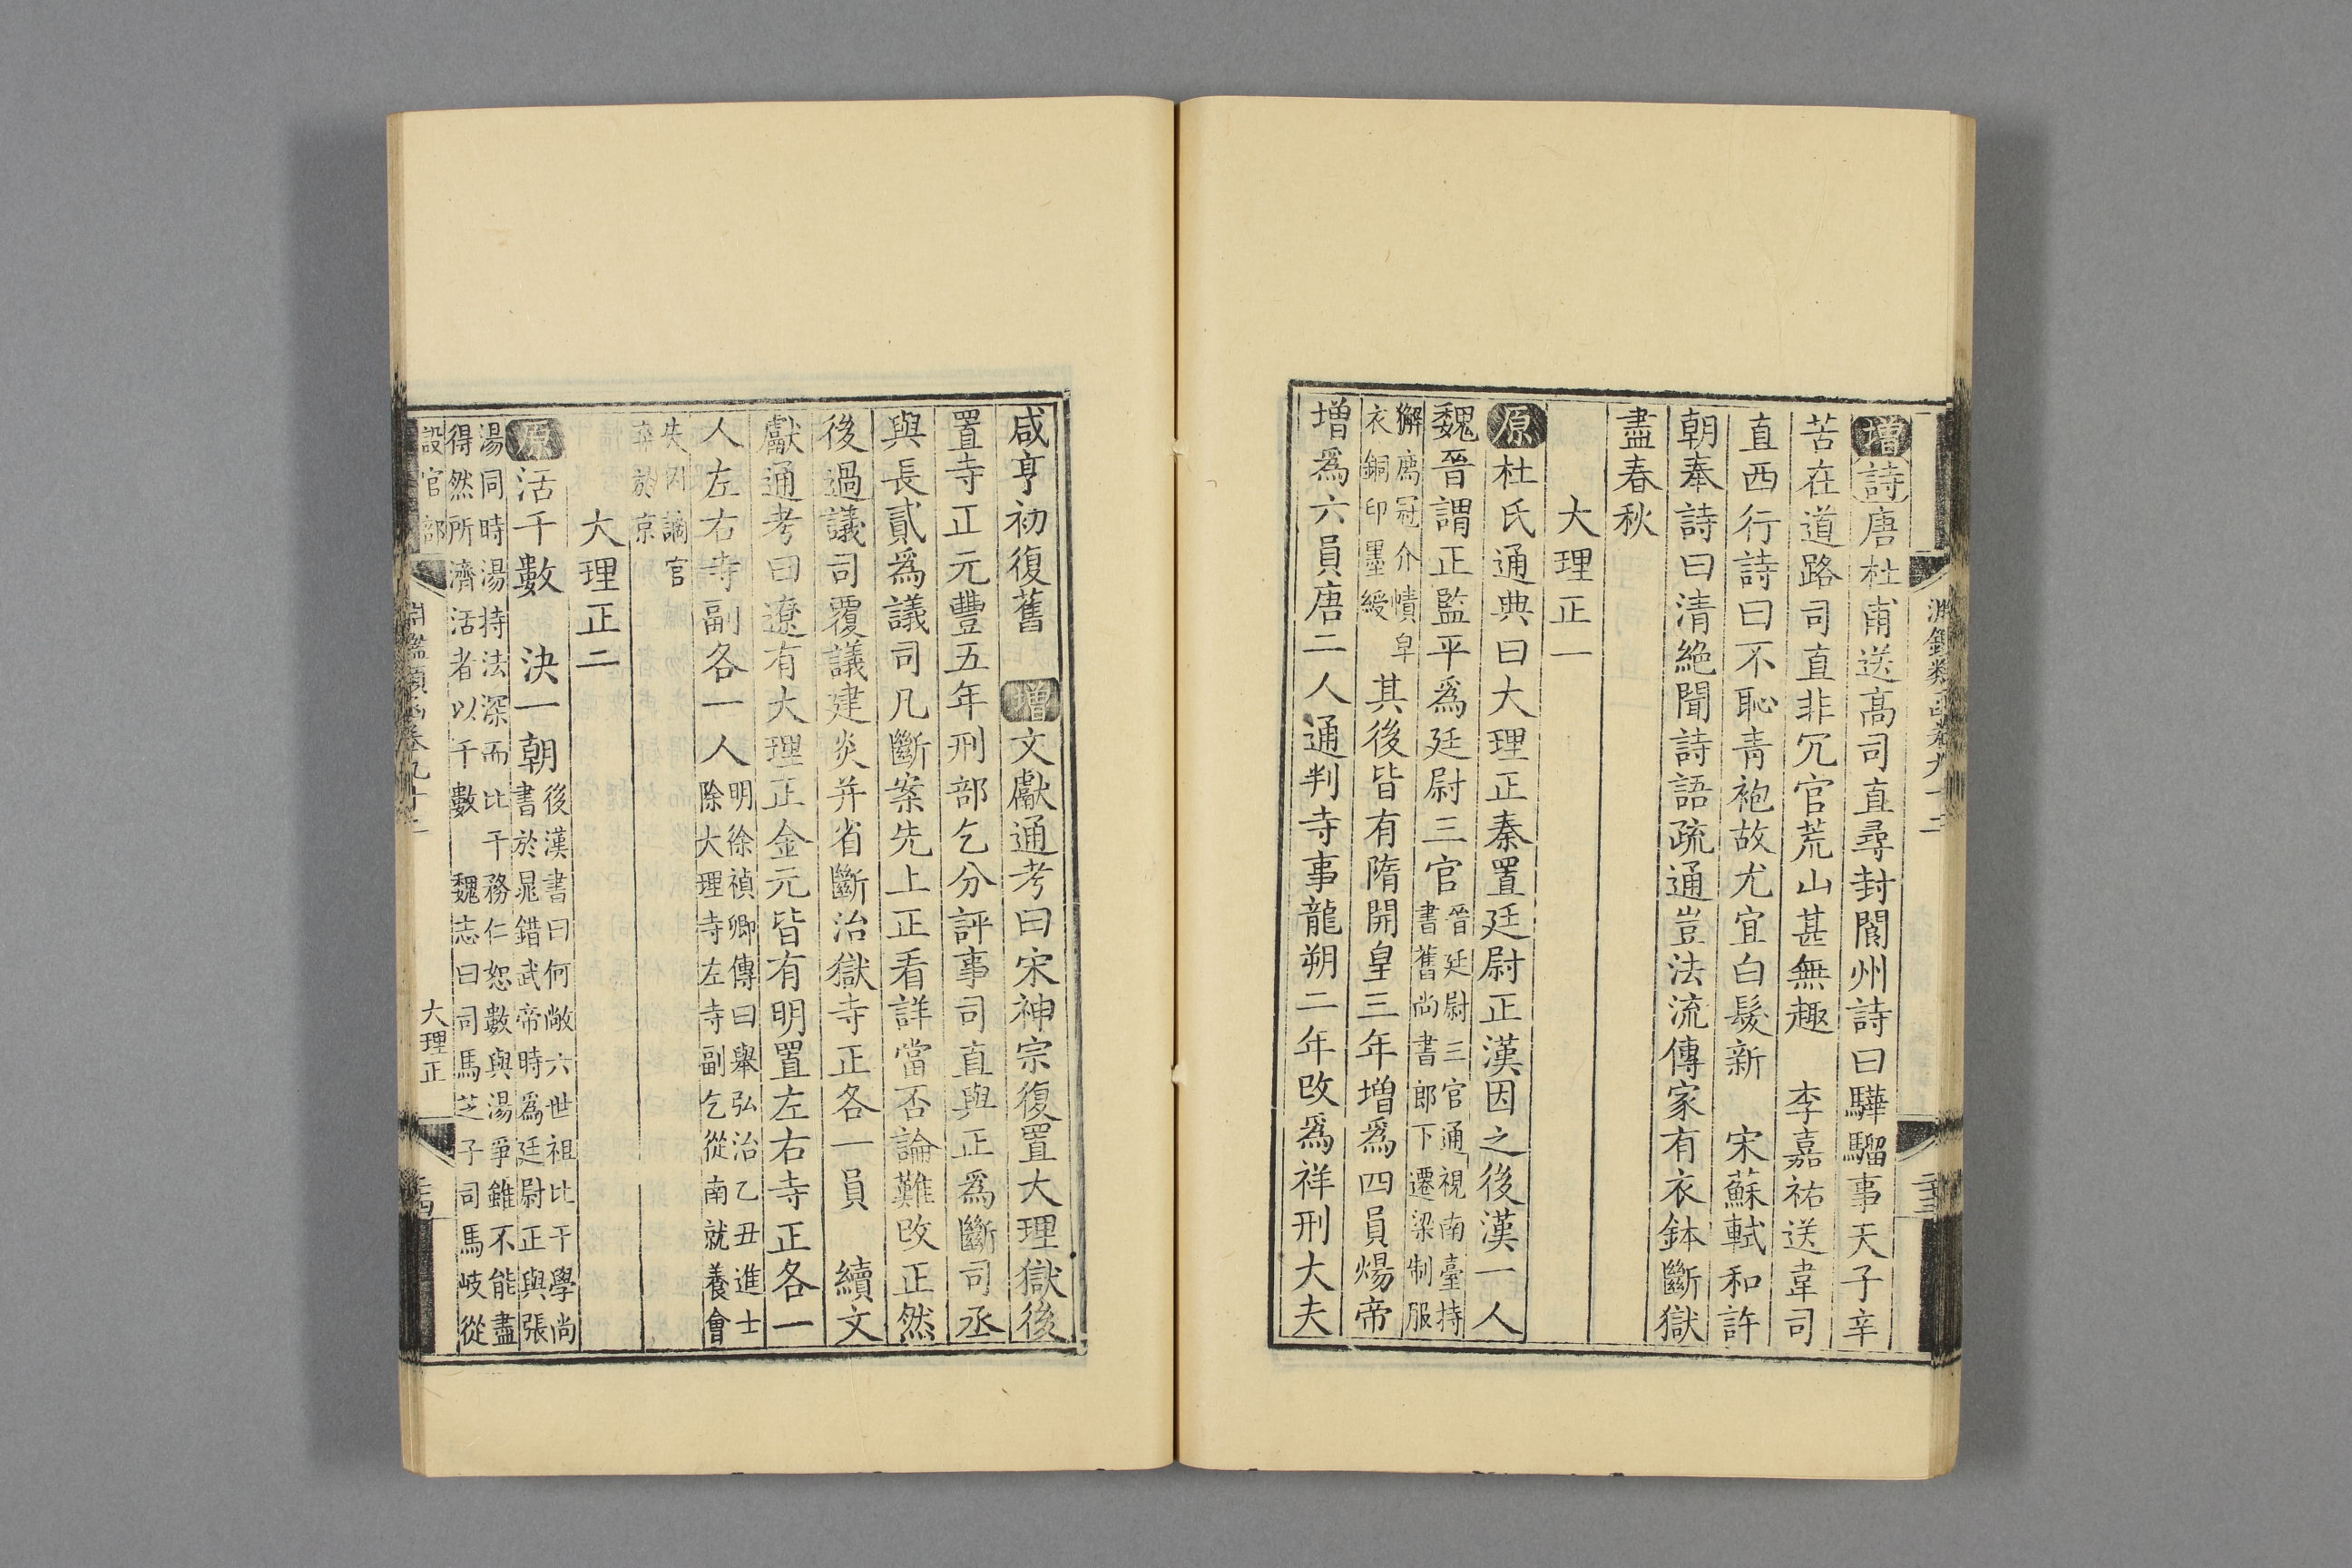 淵鑑類函卷九十二
二十三
增詩唐杜甫送高司直尋封閬州詩曰驊騮事天子辛
苦在道路司直非冗官荒山甚無趣 李嘉祐送韋司
直西行詩曰不恥青袍故尤宜白髮新 宋蘇軾和許
朝奉詩曰清絶聞詩語疏通豈法流傳家有衣鉢斷獄
盡春秋
大理正一
原杜氏通典曰大理正秦置廷尉正漢因之後漢一人
魏晉謂正監平爲廷尉三官晉廷尉三官通視南臺持書舊尚書郎下遷梁制服
獬廌冠介幘皁衣銅印墨綬其後皆有隋開皇三年增爲四員煬帝
增爲六員唐二人通判寺事龍朔二年改爲祥刑大夫
咸亨初復舊 增文獻通考曰宋神宗復置大理獄後
置寺正元豐五年刑部乞分評事司直與正爲斷司丞
與長貳爲議司凡斷案先上正看詳當否論難改正然
後過議司覆議建炎并省斷治獄寺正各一員 續文
獻通考曰遼有大理正金元皆有明置左右寺正各一
人左右寺副各一人明徐禎卿傳曰舉弘治乙丑進士除大理寺左寺副乞從南就養會
失囚謫官卒於京
大理正二
原活千數 決一朝後漢書曰何敞六世祖比干學尚書於鼂錯武帝時爲廷尉正與張
湯同時湯持法深而比干務仁恕數與湯爭雖不能盡得然所濟活者以千數 魏志曰司馬芝子司馬岐從
設官部
淵鑑類函卷九十二
大理正
二十四